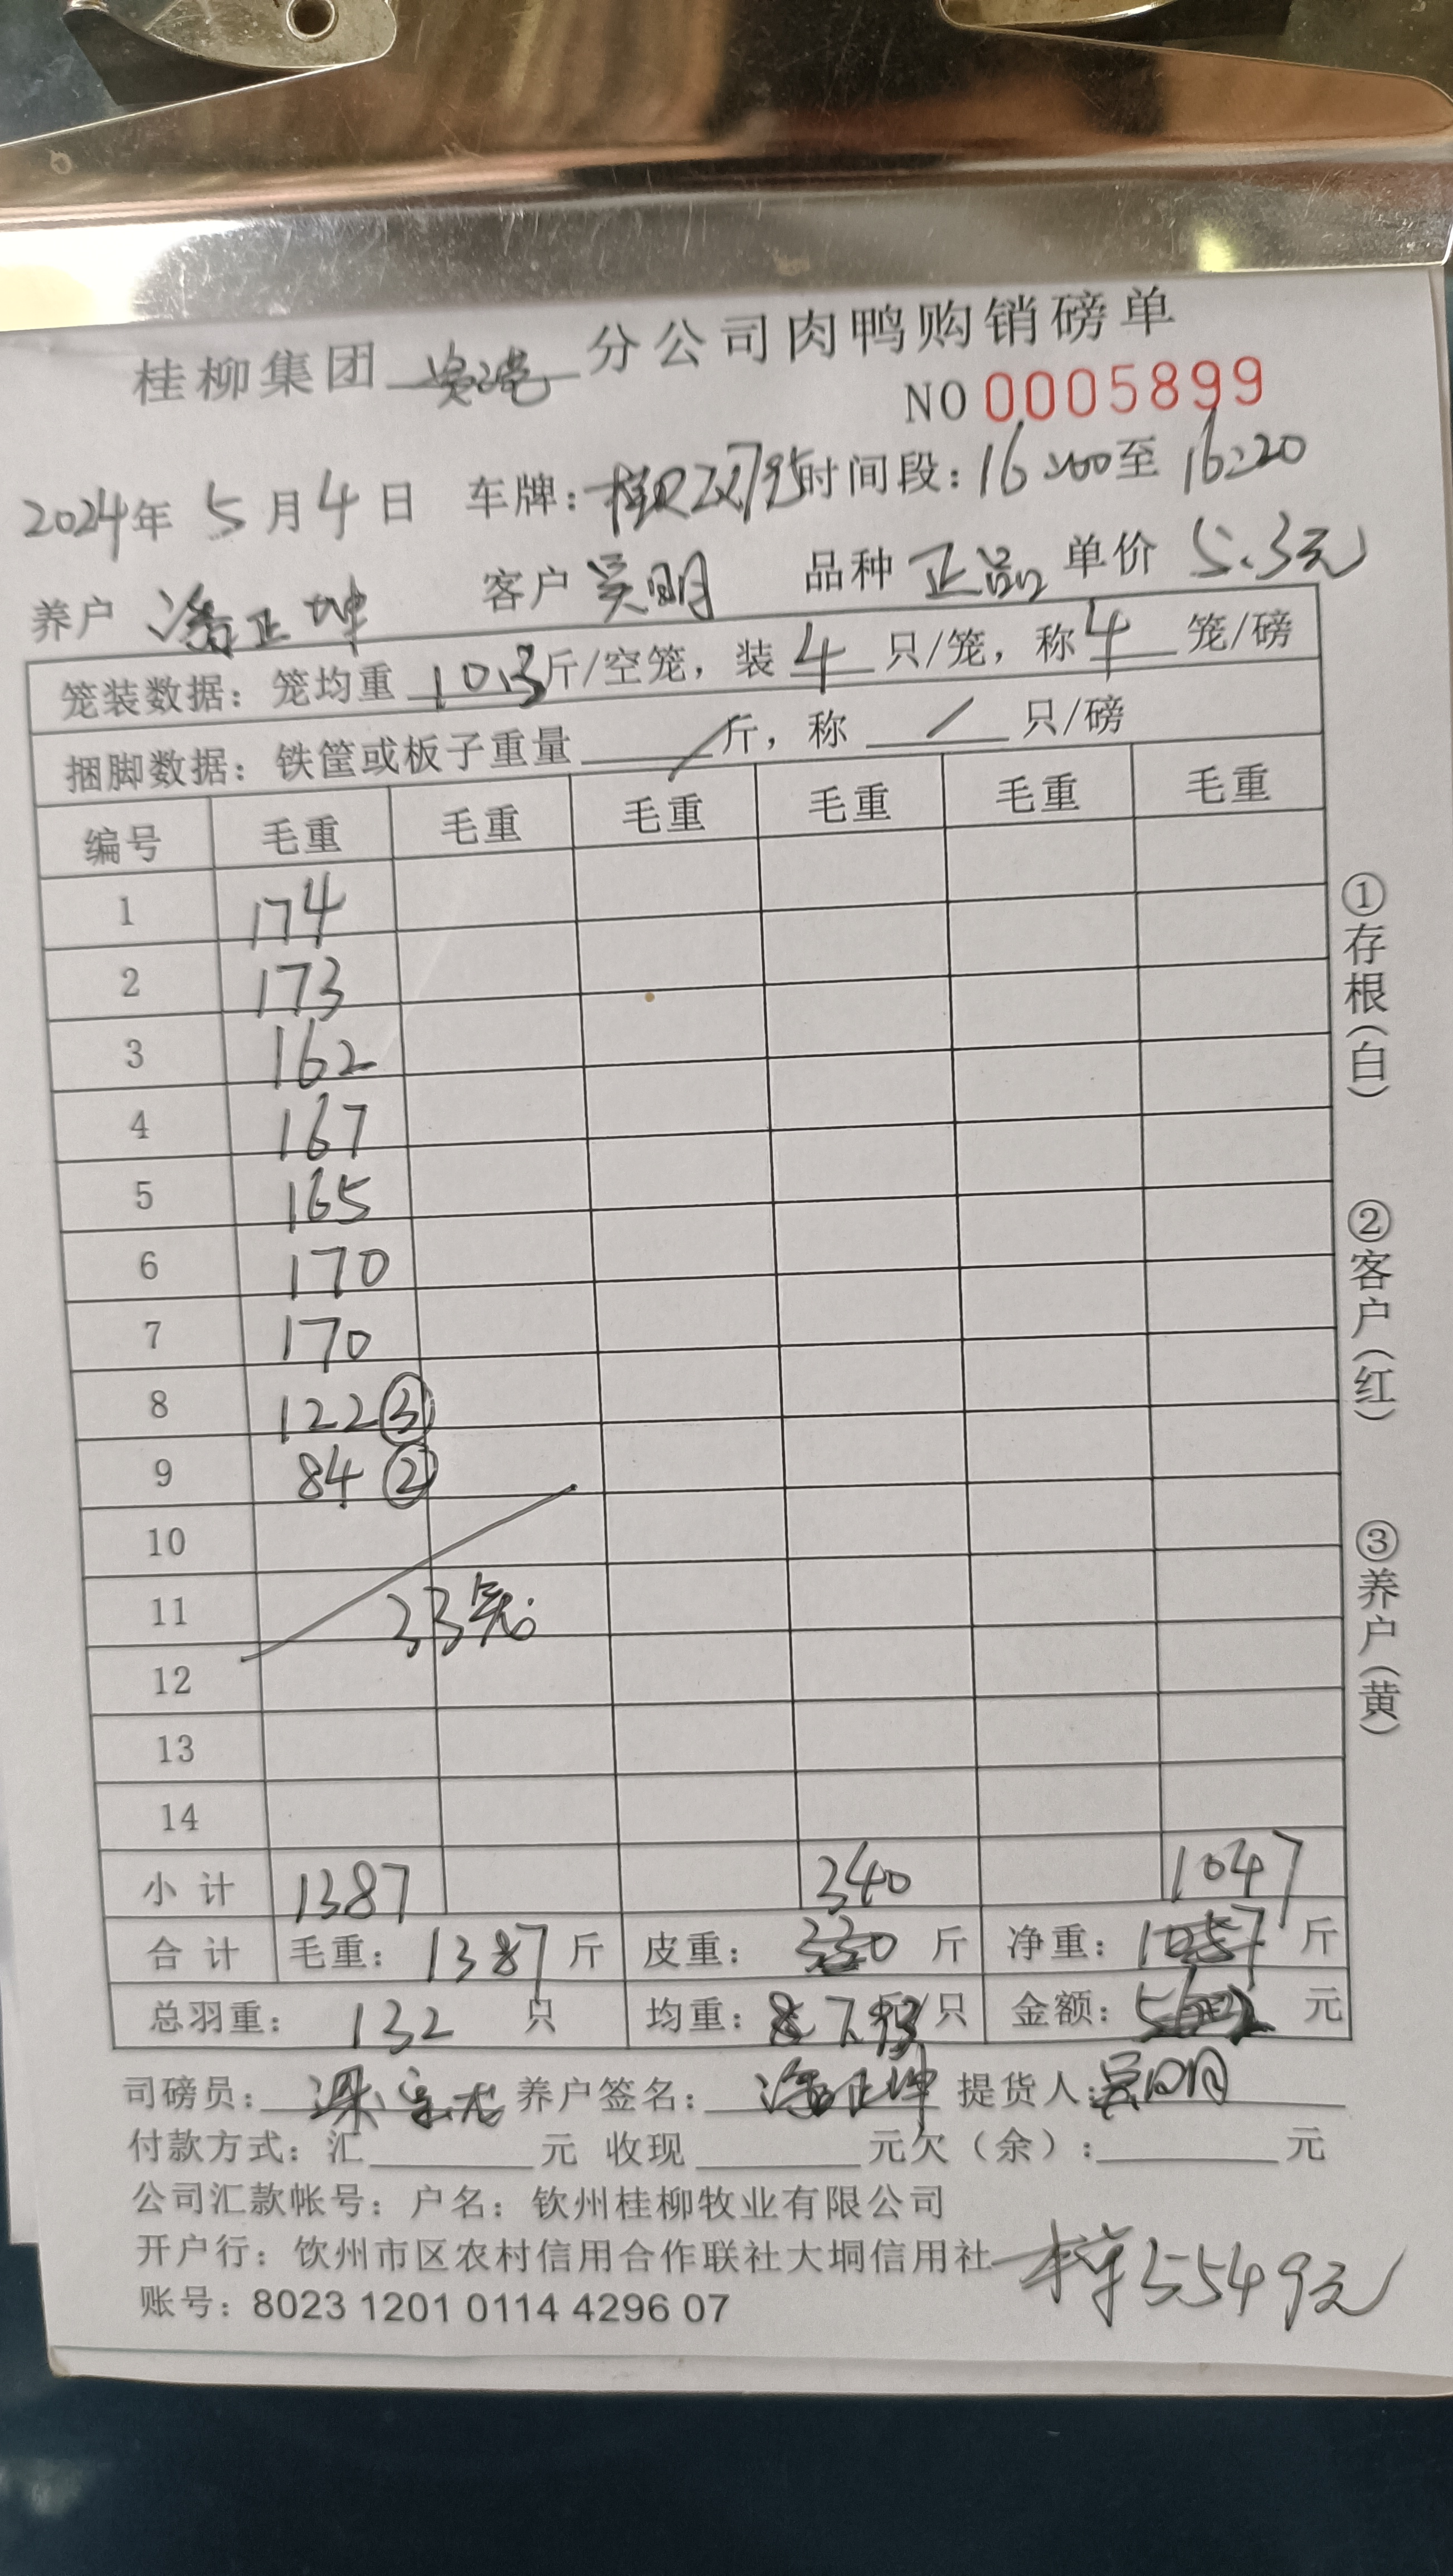 桂柳集团 贵港 分公司肉鸭购销磅单
NO 0005899
2024年 5月4日 车牌: 时间段: 16:00至 16:20
养户 潘正坤 客户 吴明 品种 正品 单价 5.3元
笼装数据: 笼均重 10.3斤/空笼, 装 4 只/笼, 称 4 笼/磅
捆脚数据: 铁筐或板子重量 / 斤, 称 / 只/磅
编号 毛重 毛重 毛重 毛重 毛重 毛重
1 174
2 173
3 162
4 167
5 165
6 170
7 170
8 122③
9 84②
10
11 33笼
12
13
14
小计 1387 340 1047
合计 毛重: 1387 斤 皮重: 330 斤 净重: 1057 斤
总羽重: 132 只 均重: 7.93 /只 金额: 元
司磅员: 养户签名: 潘正坤 提货人: 吴明
付款方式: 汇 元 收现 元欠(余): 元
公司汇款帐号: 户名: 钦州桂柳牧业有限公司
开户行: 钦州市区农村信用合作联社大垌信用社
账号: 8023 1201 0114 4296 07
5549元
①存根(白)
②客户(红)
③养户(黄)